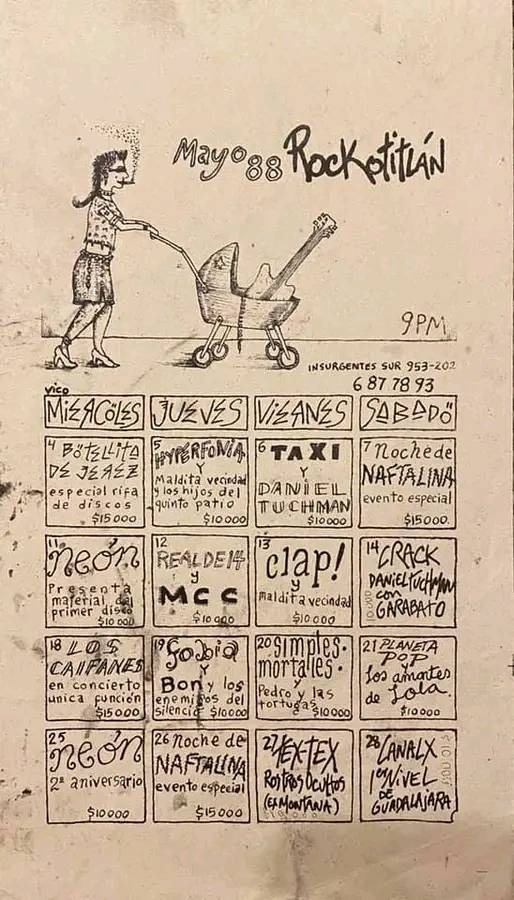 Mayo 88 Rockotitlán
9PM
INSURGENTES SUR 953-202
6 87 78 93
vico
MIÉRCOLES
JUEVES
VIERNES
SABADO
4 BOTELLITA
DE JEREZ
especial rifa
de discos
$15000
5
HYPERFONIA
Y
Maldita vecindad
y los hijos del
quinto patio
$10000
6 TAXI
Y
DANIEL
TUCHMAN
$10000
7 Noche de
NAFTALINA
evento especial
$15000
11
neón
Presenta
material del
primer disco
$10000
12
REAL DE 14
y
MCC
$10000
13
clap!
y
maldita vecindad
$10000
14 CRACK
DANIEL TUCHMAN
con
GARABATO
18 LOS
CAIFANES
en concierto
unica función
$15000
19 Fobia
Y
Bon y los
enemigos del
silencio $10000
20 simples
mortales
y
Pedro y las
tortugas
$10000
21 PLANETA
POP
Los amantes
de Lola.
$10000
25
neón
2º aniversario
$10000
26 Noche de
NAFTALINA
evento especial
$15000
27 TEX-TEX
Rostros Ocultos
(EX MONTANA)
28 CANALX
1er NIVEL
DE
GUADALAJARA